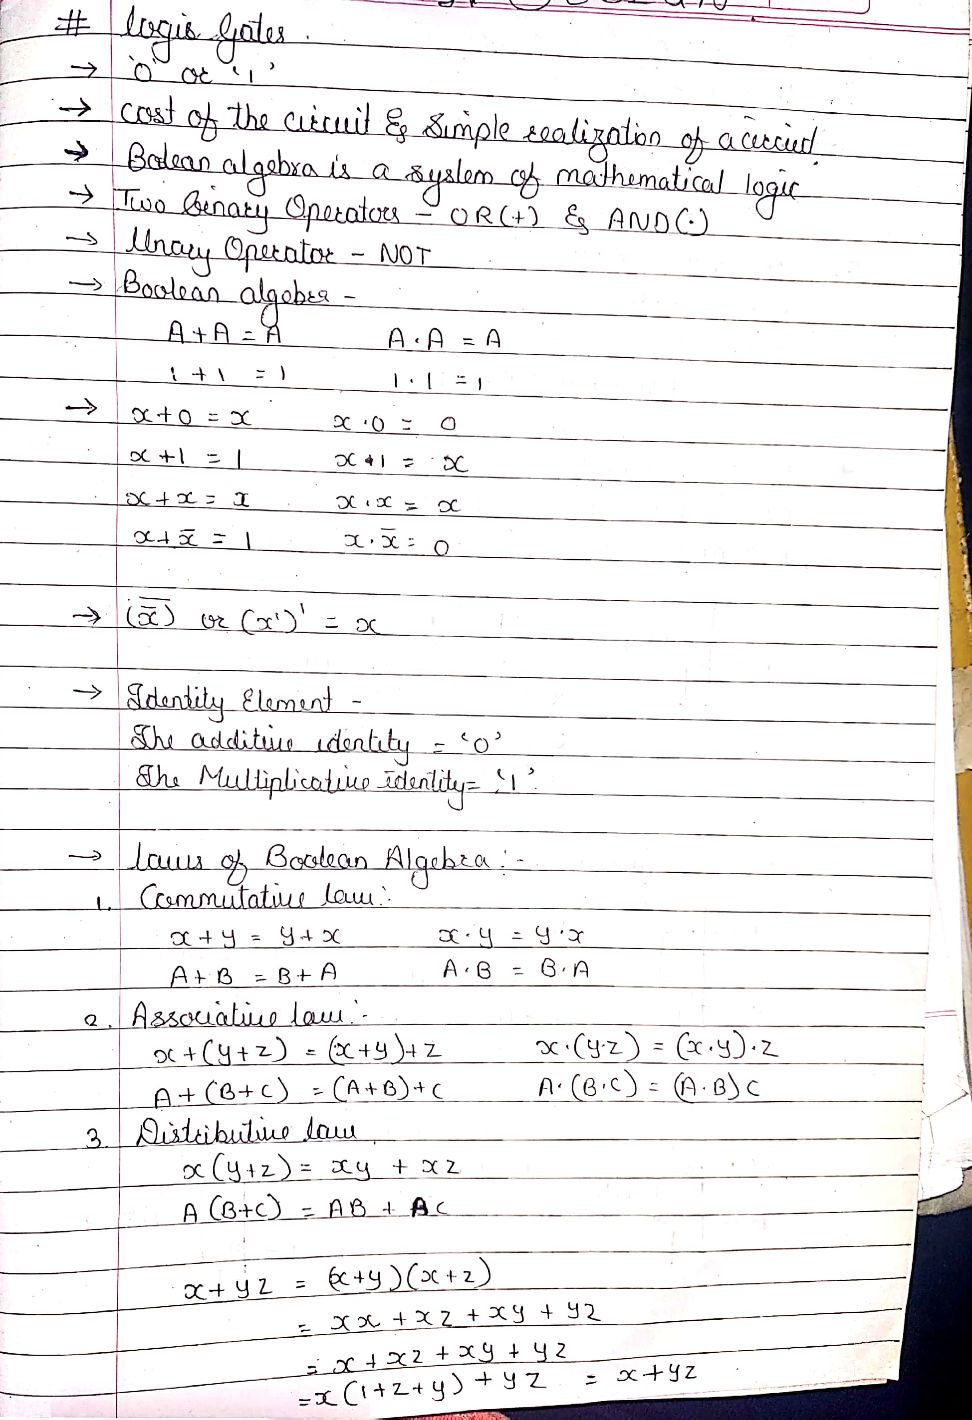 # Logic Gates.
→ '0' or '1'
→ cost of the circuit & simple realization of a circuid.
→ Bolean algebra is a system of mathematical logic
→ Two binary Operators - OR(+) & AND(·)
→ Unary Operator - NOT
→ Boolean algebra -
A+A = A A·A = A
1+1 = 1 1·1 = 1
→ x+0 = x x·0 = 0
x+1 = 1 x·1 = x
x+x = x x·x = x
x+x̄ = 1 x·x̄ = 0
→ (x̿) or (x')' = x
→ Identity Element -
The additive identity = '0'
The Multiplicative identity = '1'.
→ Laws of Boolean Algebra :-
1. Commutative law :
x+y = y+x x·y = y·x
A+B = B+A A·B = B·A
2. Associative law :-
x+(y+z) = (x+y)+z x·(y·z) = (x·y)·z
A+(B+C) = (A+B)+C A·(B·C) = (A·B)C
3. Distributive law
x(y+z) = xy + xz
A(B+C) = AB + AC
x+yz = (x+y)(x+z)
= xx + xz + xy + yz
= x + xz + xy + yz
= x(1+z+y) + yz = x+yz